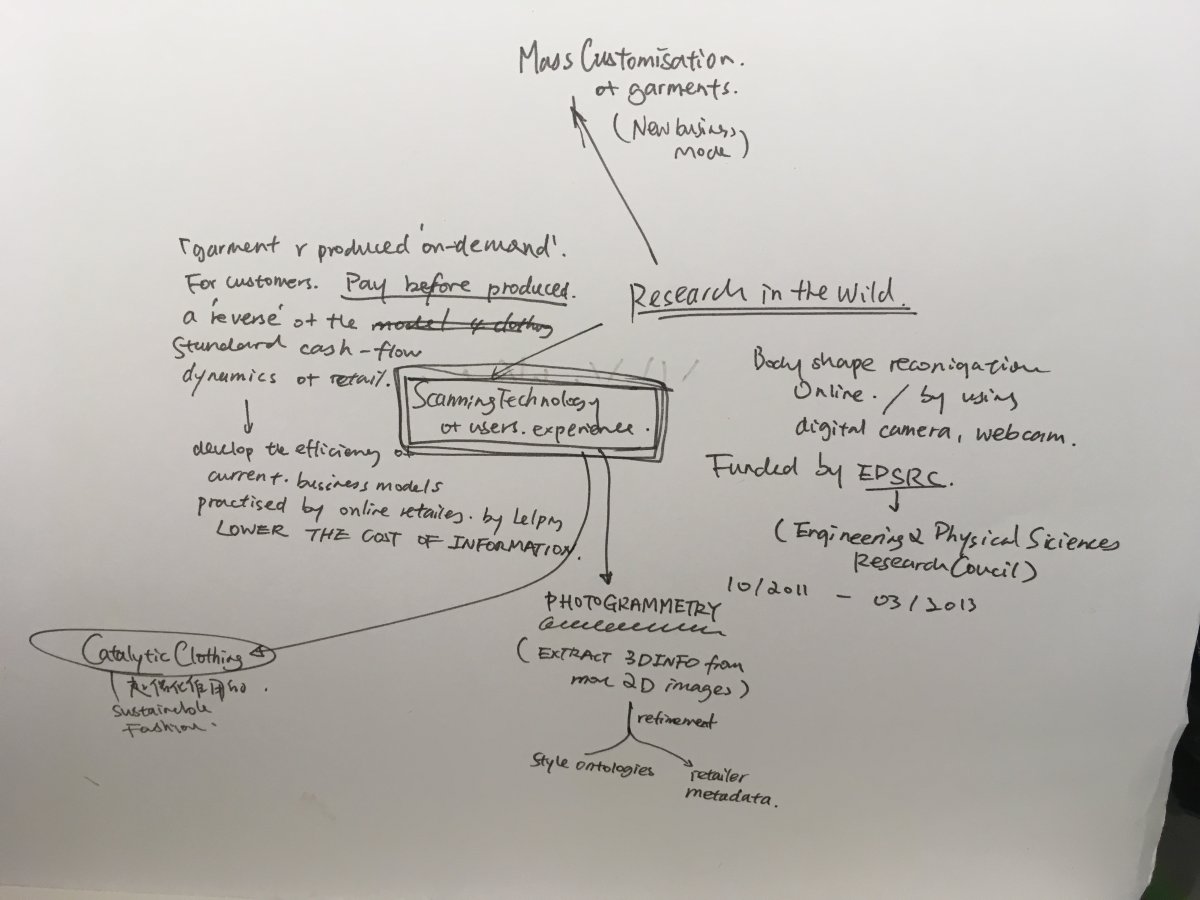 Mass Customisation.
of garments.
(New business
mode)
「garment r produced 'on-demand'.
For customers. Pay before produced.
a 'reverse' of the model of clothing
Standard cash-flow
dynamics of retail.
develop the efficiency of
current. business models
practised by online retailes. by helpng
LOWER THE COST OF INFORMATION.
Research in the Wild.
Scanning Technology
of users. experience.
Body shape reconiqation
Online. / by using
digital camera, webcam.
Funded by EPSRC.
(Engineering & Physical Siciences
Research Coucil)
10/2011 - 03/2013
PHOTOGRAMMETRY
(EXTRACT 3D INFO from
more 2D images)
retinement
Style ontologies
retailer
metadata.
Catalytic Clothing
(起催化作用的.
Sustainable
Fashion.